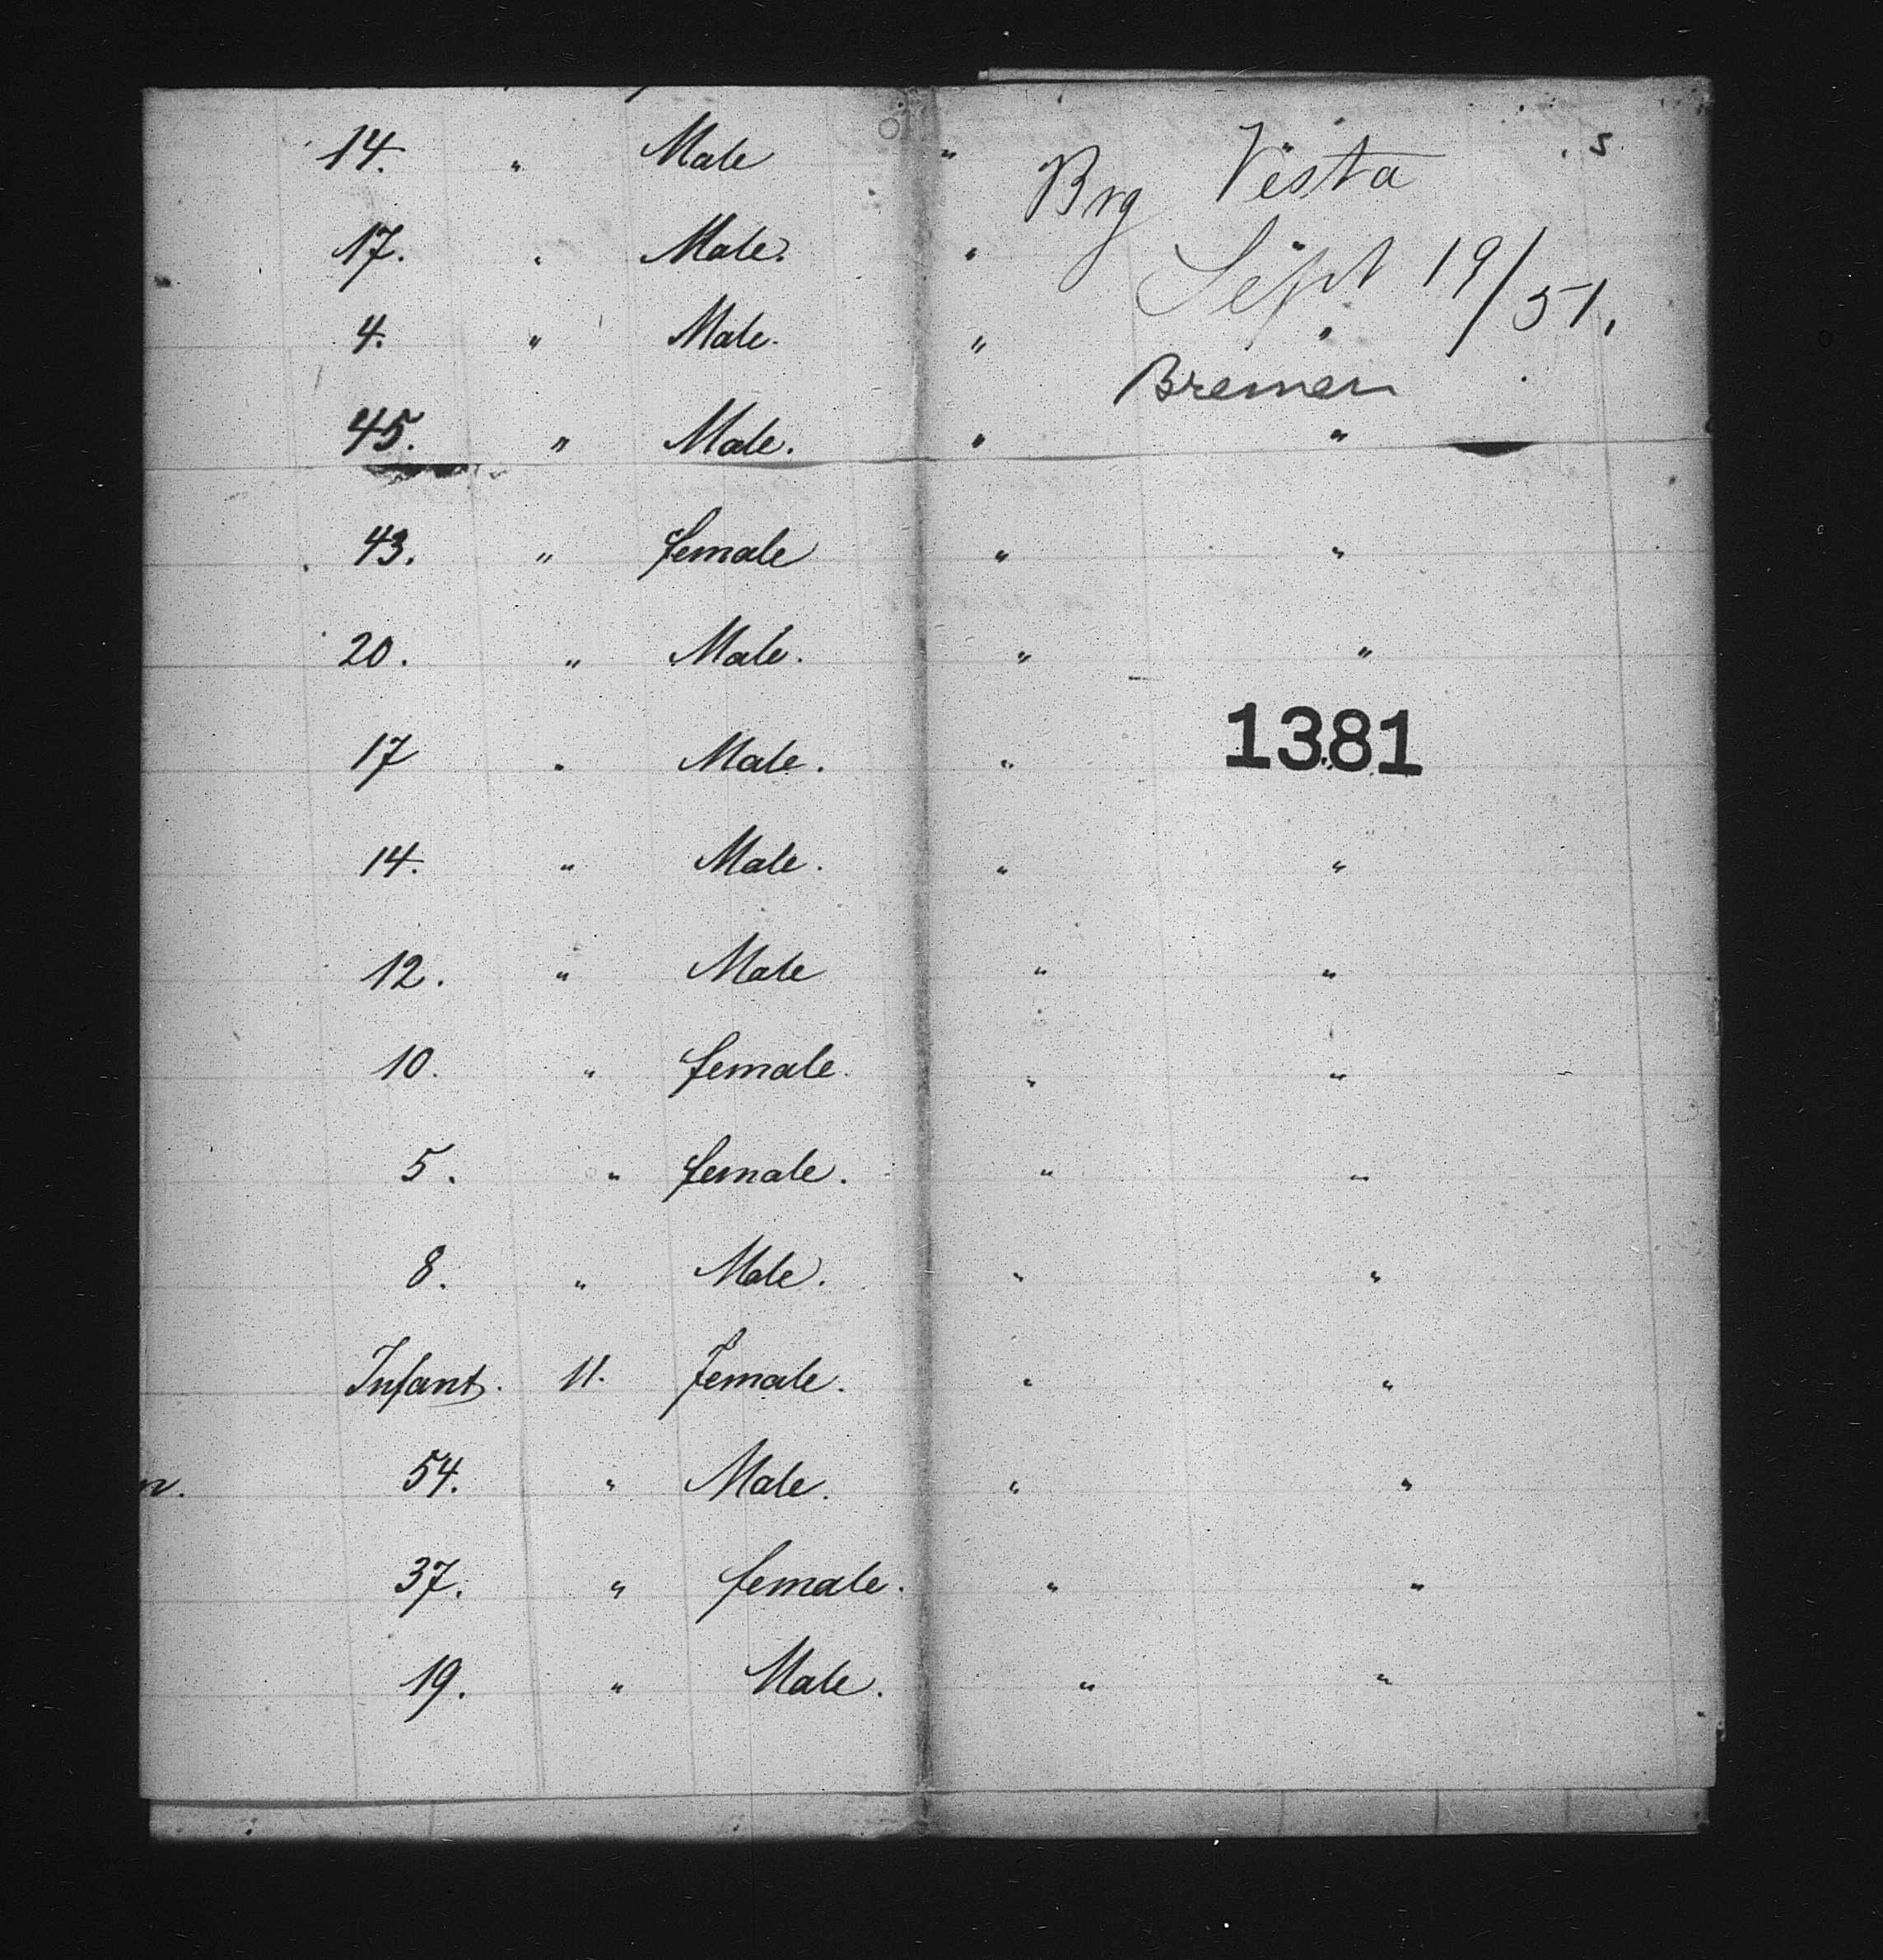 14. " Male " " s.
Brg Vesta
17. " Male. " "
Sept 19/51.
4. " Male. " "
Bremen
45. " Male. " "
43. " female " "
20. " Male. " "
17 " Male. "
1381
14. " Male. " "
12. " Male " "
10. " female. " "
5. " female. " "
8. " Male. " "
Infant. 11. female. " "
54. " Male. " "
37. " female. " "
19. " Male. " "